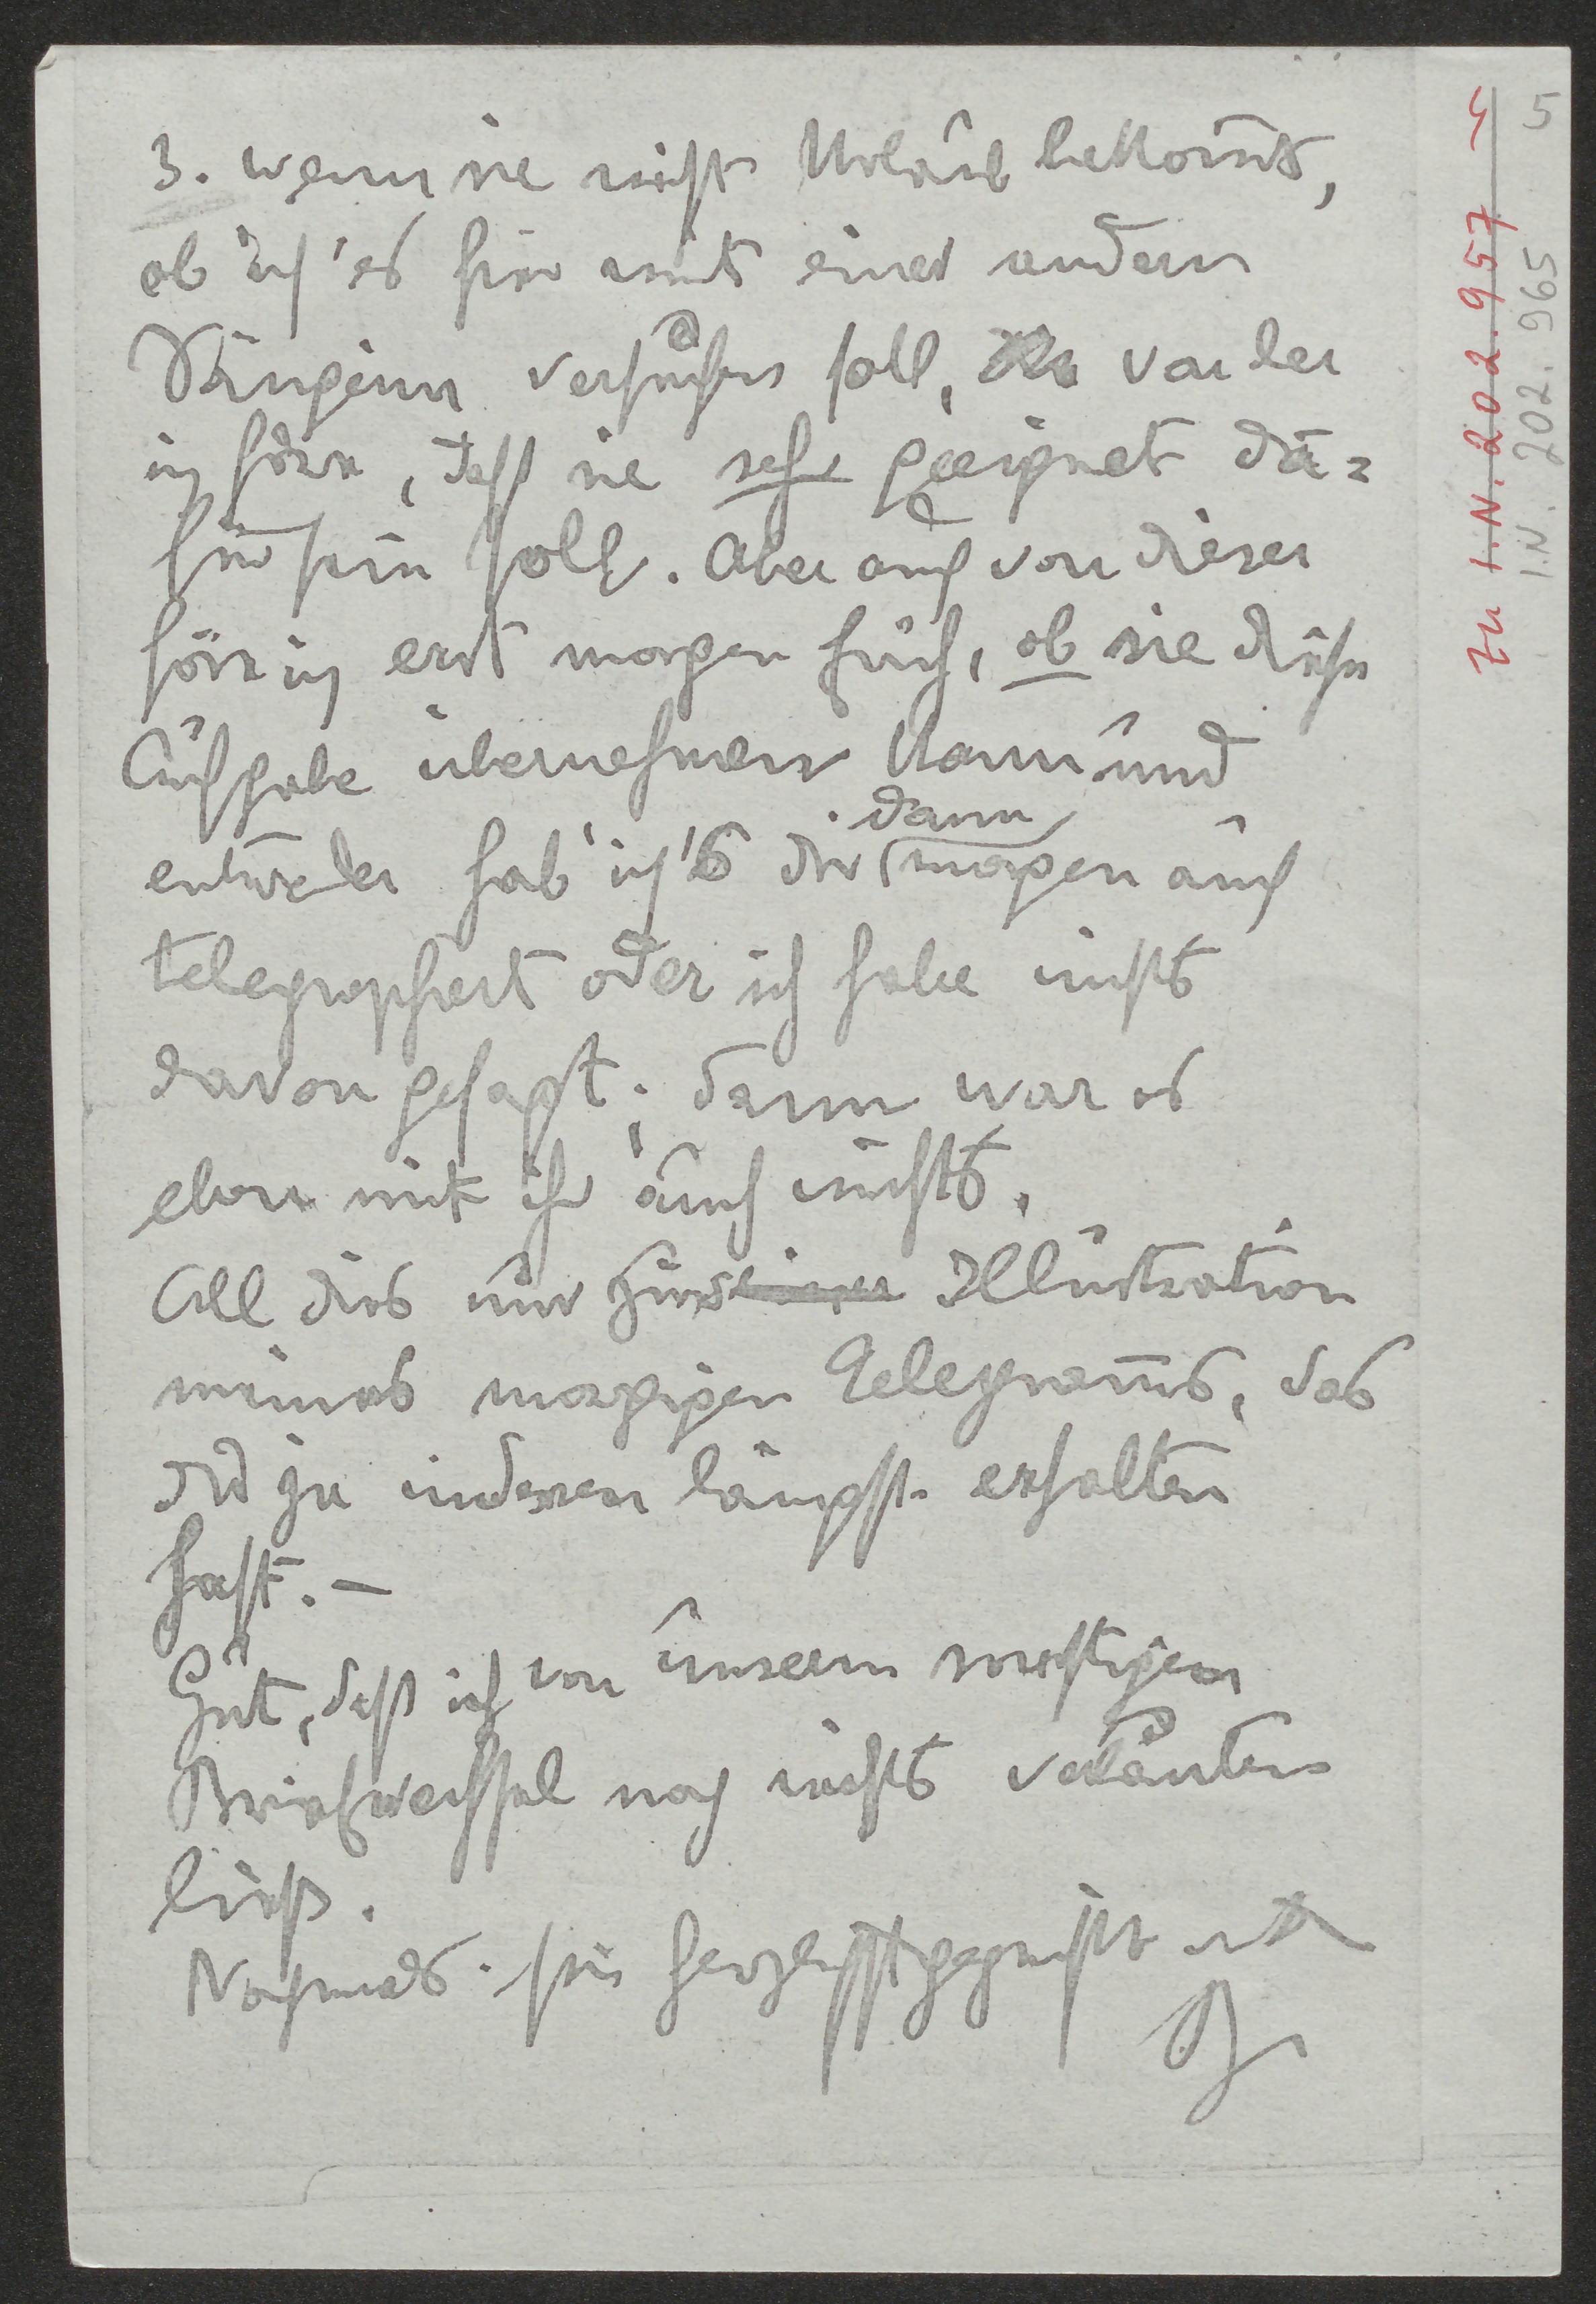 3. wenn sie nicht Urlaub bekom̅t,
ob ich's hier mit einer andern
Sängerin versuchen soll, von der
ich höre, daß sie sehr geeignet da=
für sein soll. Aber auch von dieser
höre ich erst morgen früh, ob sie diese
Aufgabe übernehmen kann und
entweder hab' ich's dir dann morgen auch
telegraphiert oder ich habe nichts
davon gesagt; dann war es
eben mit ihr auch nichts.
All dies nur zur Illustration
meines morgigen Telegram̅s, das
du ja indessen längst erhalten
hast. –
Gut, daß ich von unserm
Briefwechsel noch nichts verlauten
ließ.
Nochmals sei herzlichst gegrüßt
5
Zu I.N. 202.957
I.N. 202.965